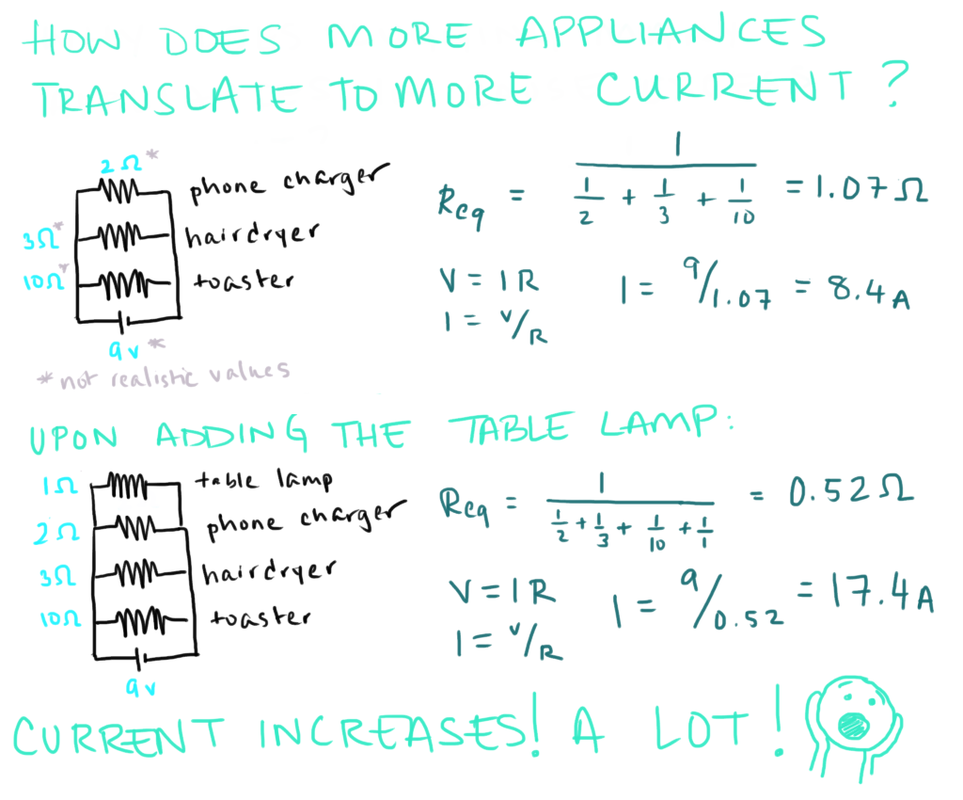 HOW DOES MORE APPLIANCES
TRANSLATE TO MORE CURRENT?
2Ω*
phone charger
3Ω*
hairdryer
10Ω*
toaster
9V*
*not realistic values
Req = 1 / (1/2 + 1/3 + 1/10) = 1.07Ω
V = IR
I = V/R
I = 9/1.07 = 8.4A
UPON ADDING THE TABLE LAMP:
1Ω
table lamp
2Ω
phone charger
3Ω
hairdryer
10Ω
toaster
9V
Req = 1 / (1/2 + 1/3 + 1/10 + 1/1) = 0.52Ω
V = IR
I = V/R
I = 9/0.52 = 17.4A
CURRENT INCREASES! A LOT!